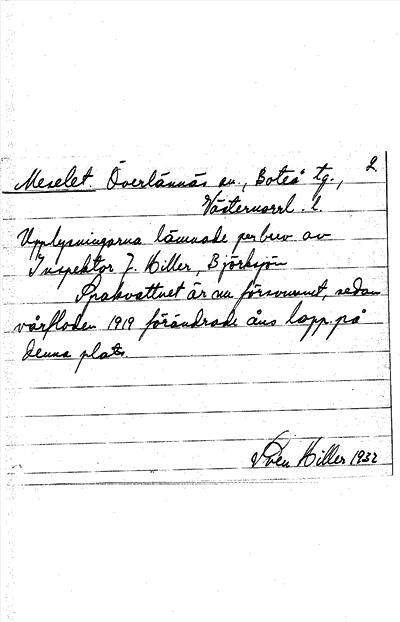 2
Meselet. Överlännäs sn., Boteå tg.,
Västernorrl. l.
Upplysningarna lämnade per brev av
Inspektor J. Hiller, Björksjön
Spakvattnet är nu försvunnet, sedan
vårfloden 1919 förändrade åns lopp på
denna plats.
Sven Hiller 1932